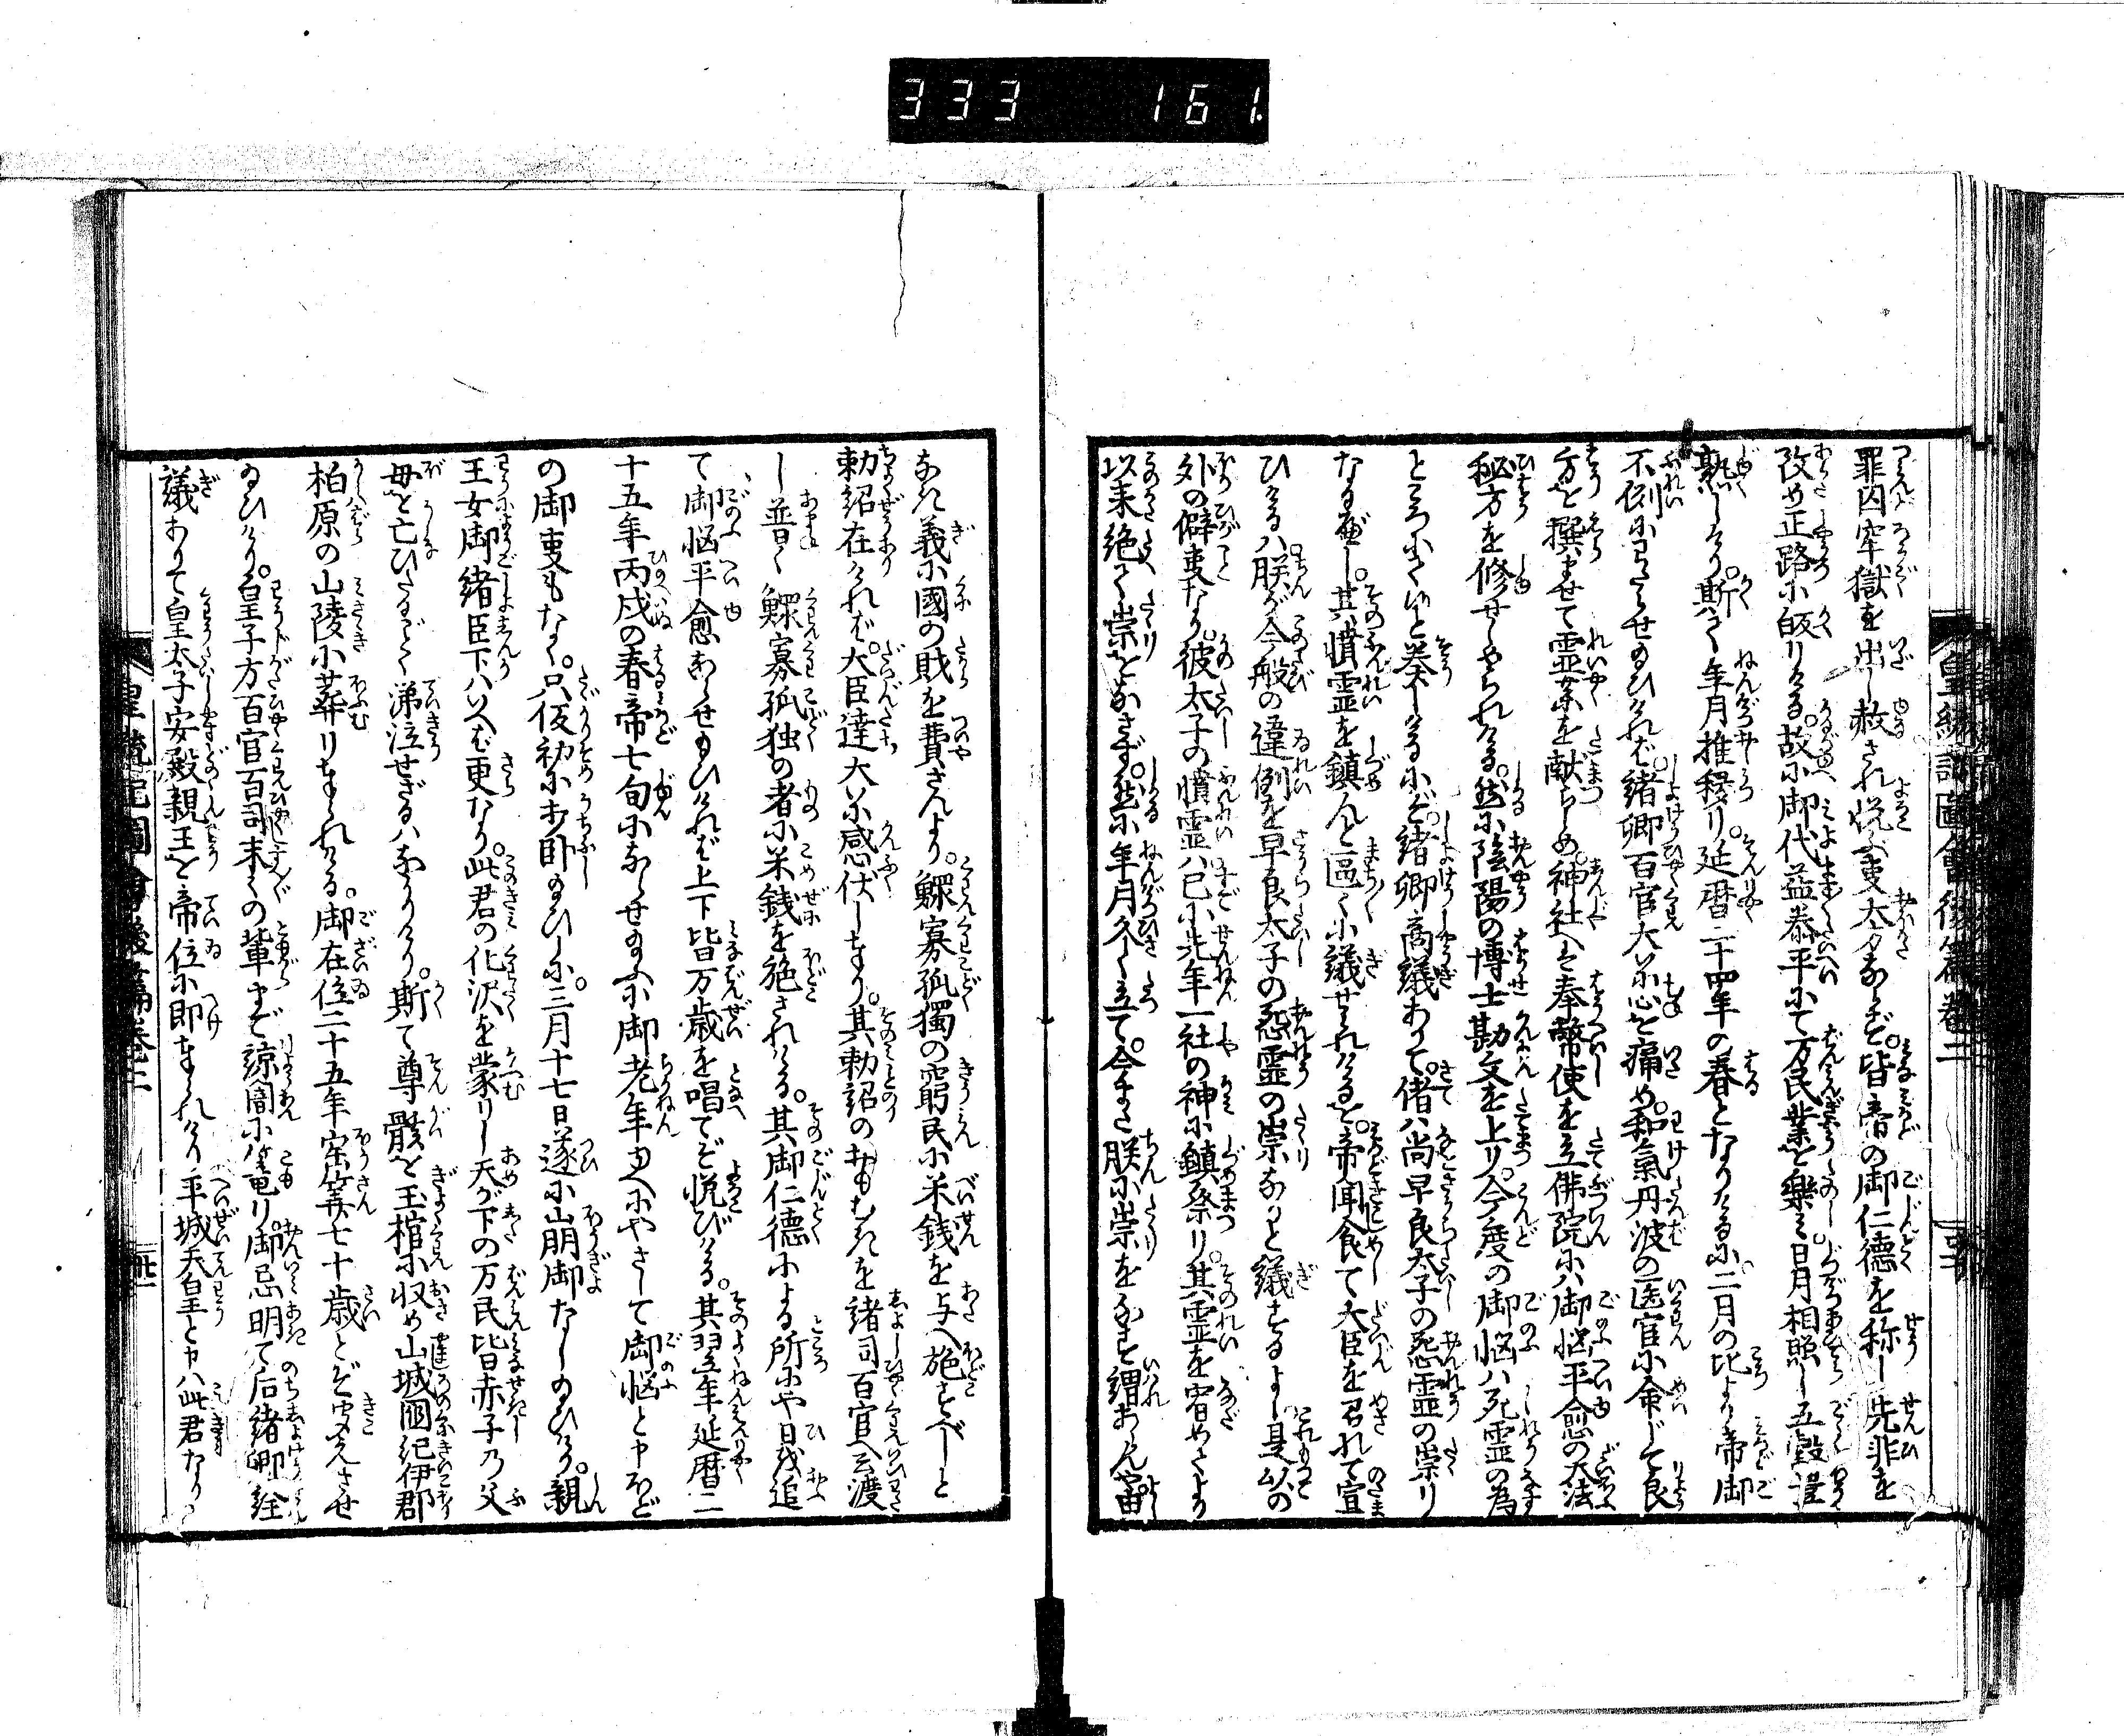 333 161.
罪囚牢獄を出し赦され悦ぶ事大かたならず。皆帝の御仁徳を称し先非を
改め正路に皈りける。故に御代益泰平にて万民業を楽み日月相照し五穀豊
熟しけり。斯て年月推移り。延暦二十四年の春となりたるに。二月の比より帝御
不例にわたらせ給ひければ。諸卿百官大いに心を痛め。和氣丹波の医官に命じて良
方を撰ませて霊薬を献らしめ。神社へは奉幣使を立佛院には御悩平愈の大法
秘方を修せしめられける。然に陰陽の博士勘文を上り。今度の御悩は死霊の為
ところにて候と奏しけるにぞ。諸卿商議ありて。偖は尚早良太子の怨霊の祟り
なるべし。其憤霊を鎮んと區々に議せられけると。帝聞食て大臣を召れて宣
ひけるは。朕が今般の違例を早良太子の怨霊の祟なりと議するよし是以の
外の僻事なり。彼太子の憤霊は已に先年一社の神に鎮祭り。其霊を宥めさより
以来絶て祟をなさず。然に年月久く立て。今また朕に祟をなす謂あらんや。由
なき義に國の財を費さんより。鰥寡孤獨の窮民に米銭を与へ施すべしと
勅詔在ければ。大臣達大いに感伏しまゐり。其勅詔のおもむきを諸司百官へ云渡
し普く鰥寡孤独の者に米銭を施されける。其御仁徳による所にや日を追
て御悩平愈ましませ給ひければ上下皆万歳を唱てぞ悦びける。其翌年延暦二
十五年丙戌の春帝七旬にならせ給ふに御老年ゆへにやさして御悩と申ほど
の御事もなく。只仮初にお卧給ひしに。三月十七日遂に崩御なし給ひけり。親
王女御諸臣下はいへば更なり。此君の化沢を蒙りし天が下の万民皆赤子乃父
母を亡ひたるごとく涕泣せざるはなかりけり。斯て尊骸を玉棺に収め山城國紀伊郡
柏原の山陵に葬りまゐられける。御在位二十五年宝算七十歳とぞ聞えさせ
給ひけり。皇子方百官百司末々の輩まで諒闇に篭り。御忌明て后諸卿詮
議ありて皇太子安殿親王を帝位に即まゐられけり平城天皇と申は此君なり